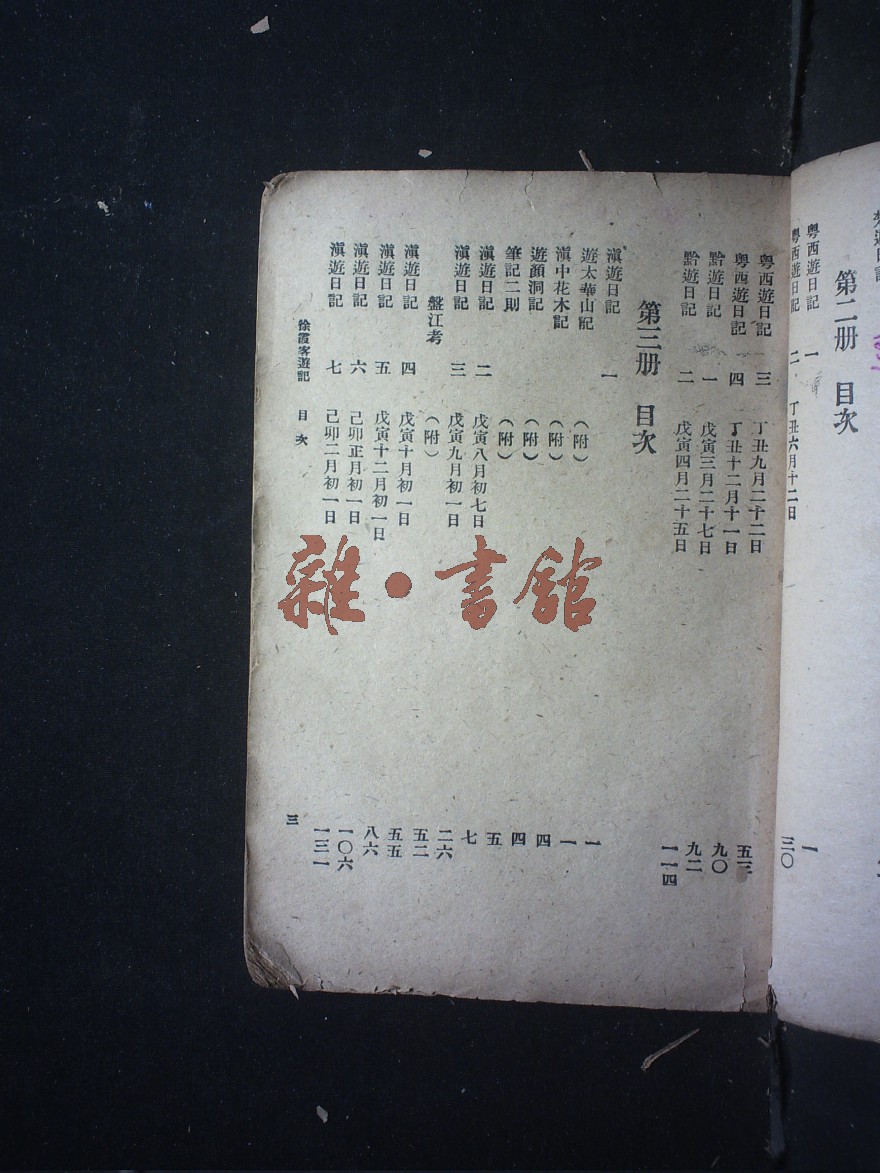 第二册 目次
粤西遊日記 一 一
粤西遊日記 二 丁丑六月十二日 三〇
粤西遊日記 三 丁丑九月二十二日 五三
粤西遊日記 四 丁丑十二月十一日 九〇
黔遊日記 一 戊寅三月二十七日 九二
黔遊日記 二 戊寅四月二十五日 一一四
第三册 目次
滇遊日記 一 一
遊太華山記 (附) 一
滇中花木記 (附) 四
遊顏洞記 (附) 四
筆記二則 (附) 五
滇遊日記 二 戊寅八月初七日 七
滇遊日記 三 戊寅九月初一日 二六
盤江考 (附) 五二
滇遊日記 四 戊寅十月初一日 五五
滇遊日記 五 戊寅十二月初一日 八六
滇遊日記 六 己卯正月初一日 一〇六
滇遊日記 七 己卯二月初一日 一三一
徐霞客遊記 目次 三
雜·書館